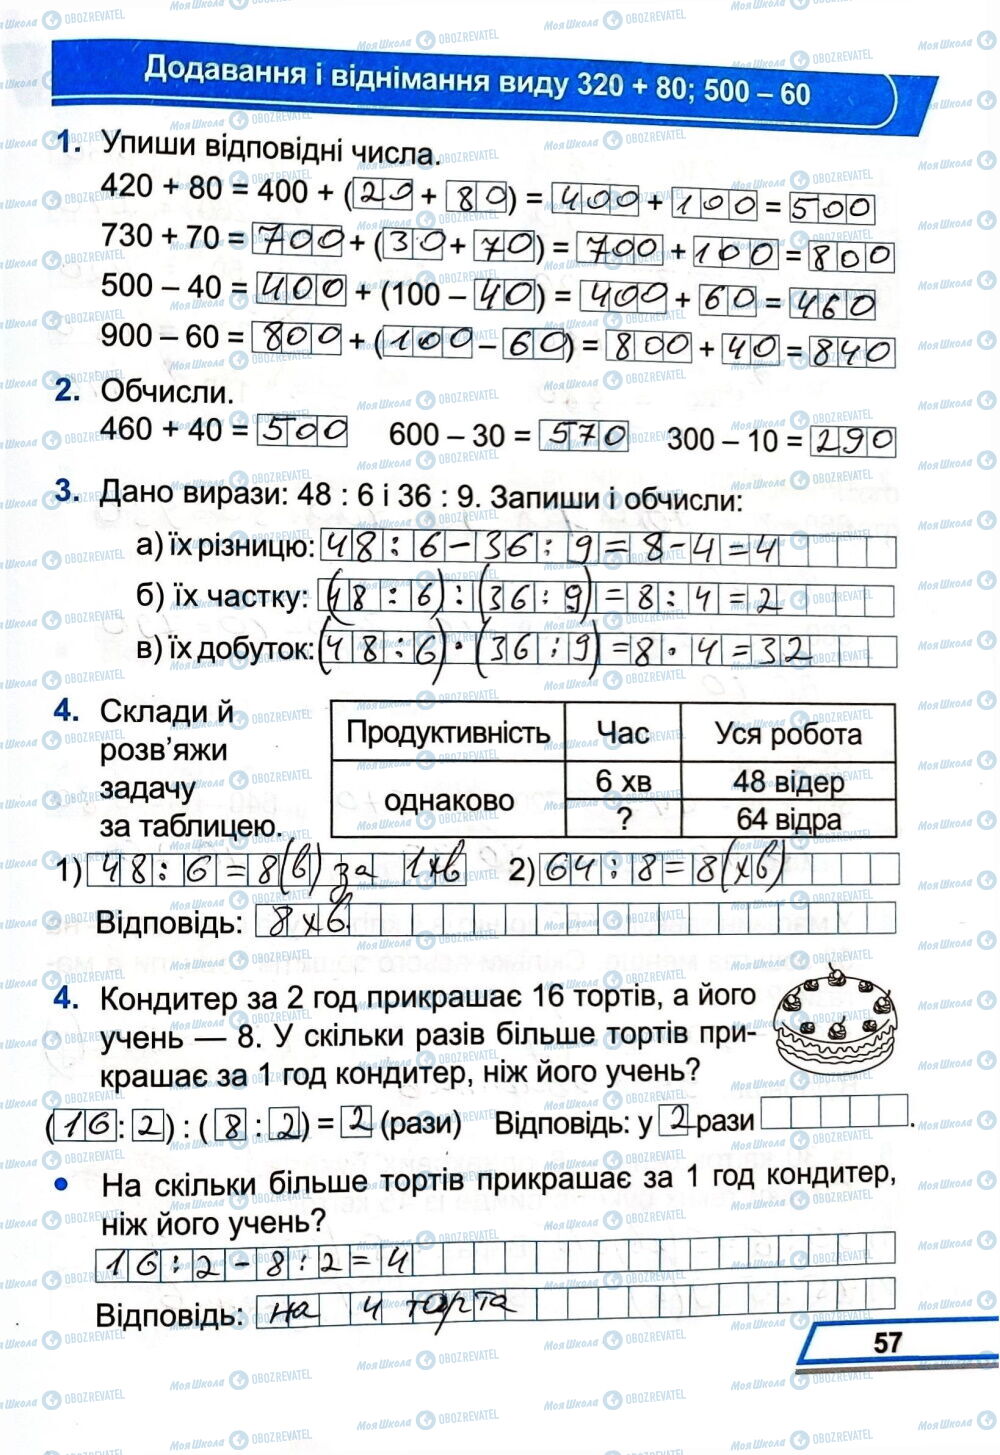 Додавання і віднімання виду 320 + 80; 500 – 60
1. Упиши відповідні числа.
420 + 80 = 400 + (20 + 80) = 400 + 100 = 500
730 + 70 = 700 + (30 + 70) = 700 + 100 = 800
500 – 40 = 400 + (100 – 40) = 400 + 60 = 460
900 – 60 = 800 + (100 – 60) = 800 + 40 = 840
2. Обчисли.
460 + 40 = 500 600 – 30 = 570 300 – 10 = 290
3. Дано вирази: 48 : 6 і 36 : 9. Запиши і обчисли:
а) їх різницю: 48 : 6 – 36 : 9 = 8 – 4 = 4
б) їх частку: (48 : 6) : (36 : 9) = 8 : 4 = 2
в) їх добуток: (48 : 6) · (36 : 9) = 8 · 4 = 32
4. Склади й
розв’яжи
задачу
за таблицею.
Продуктивність Час Уся робота
однаково 6 хв 48 відер
? 64 відра
1) 48 : 6 = 8 (в) за 1 хв 2) 64 : 8 = 8 (хв)
Відповідь: 8 хв.
4. Кондитер за 2 год прикрашає 16 тортів, а його
учень — 8. У скільки разів більше тортів при-
крашає за 1 год кондитер, ніж його учень?
(16 : 2) : (8 : 2) = 2 (рази) Відповідь: у 2 рази .
• На скільки більше тортів прикрашає за 1 год кондитер,
ніж його учень?
16 : 2 – 8 : 2 = 4
Відповідь: на 4 торта
57
МояШкола OBOZREVATEL